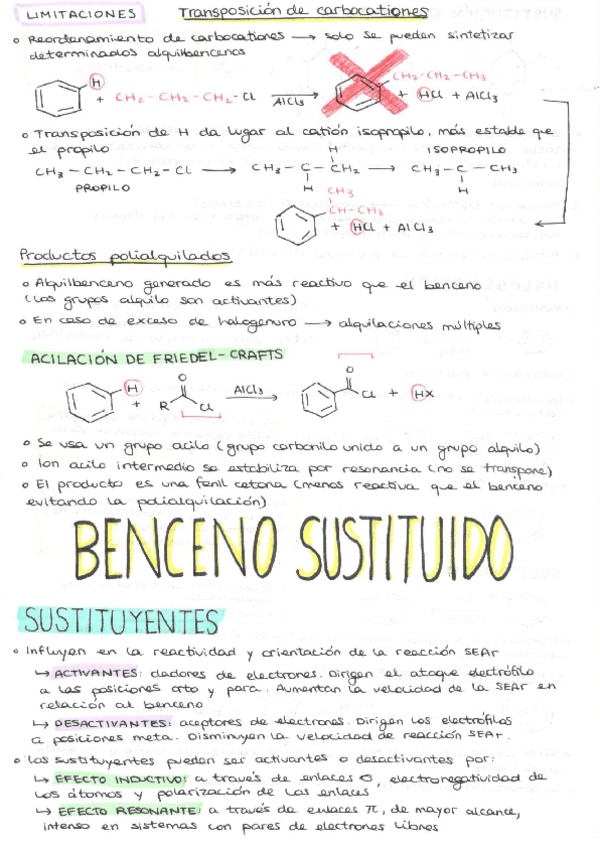 LIMITACIONES Transposición de carbocationes
o Reordenamiento de carbocationes → solo se pueden sintetizar
determinados alquilbencenos
H
+ CH2-CH2-CH2-Cl AlCl3 CH2-CH2-CH3 + HCl + AlCl3
o Transposición de H da lugar al catión isopropilo, más estable que
el propilo
H ISOPROPILO
CH3-CH2-CH2-Cl → CH3-C-CH2 → CH3-C-CH3
PROPILO H H
CH3
CH-CH3
+ HCl + AlCl3
Productos polialquilados
o Alquilbenceno generado es más reactivo que el benceno
(los grupos alquilo son activantes)
o En caso de exceso de halogenuro → alquilaciones múltiples
ACILACIÓN DE FRIEDEL-CRAFTS
H + R O Cl AlCl3 O Cl + HX
o Se usa un grupo acilo (grupo carbonilo unido a un grupo alquilo)
o Ion acilo intermedio se estabiliza por resonancia (no se transpone)
o El producto es una fenil cetona (menos reactiva que el benceno
evitando la polialquilación)
BENCENO SUSTITUIDO
SUSTITUYENTES
o Influyen en la reactividad y orientación de la reacción SEAr
↳ ACTIVANTES: dadores de electrones. Dirigen el ataque electrófilo
a las posiciones orto y para. Aumentan la velocidad de la SEAr en
relación al benceno
↳ DESACTIVANTES: aceptores de electrones. Dirigen los electrófilos
a posiciones meta. Disminuyen la velocidad de reacción SEAr.
o Los sustituyentes pueden ser activantes o desactivantes por:
↳ EFECTO INDUCTIVO: a través de enlaces σ, electronegatividad de
los átomos y polarización de los enlaces
↳ EFECTO RESONANTE: a través de enlaces π, de mayor alcance,
intenso en sistemas con pares de electrones libres